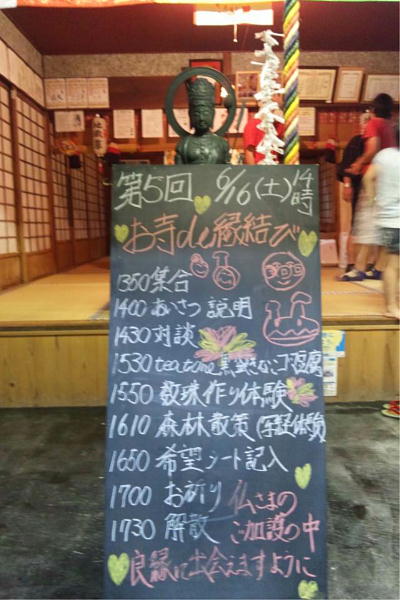 第5回 6/16(土)14時
お寺de縁結び
1350 集合
1400 あいさつ 説明
1430 対談
1530 teatime 黒蜜きなこ豆腐
1550 数珠作り体験
1610 森林散策(写経体験)
1650 希望シート記入
1700 お祈り
1730 解散
仏さまの
ご加護の中
良縁に出会えますように